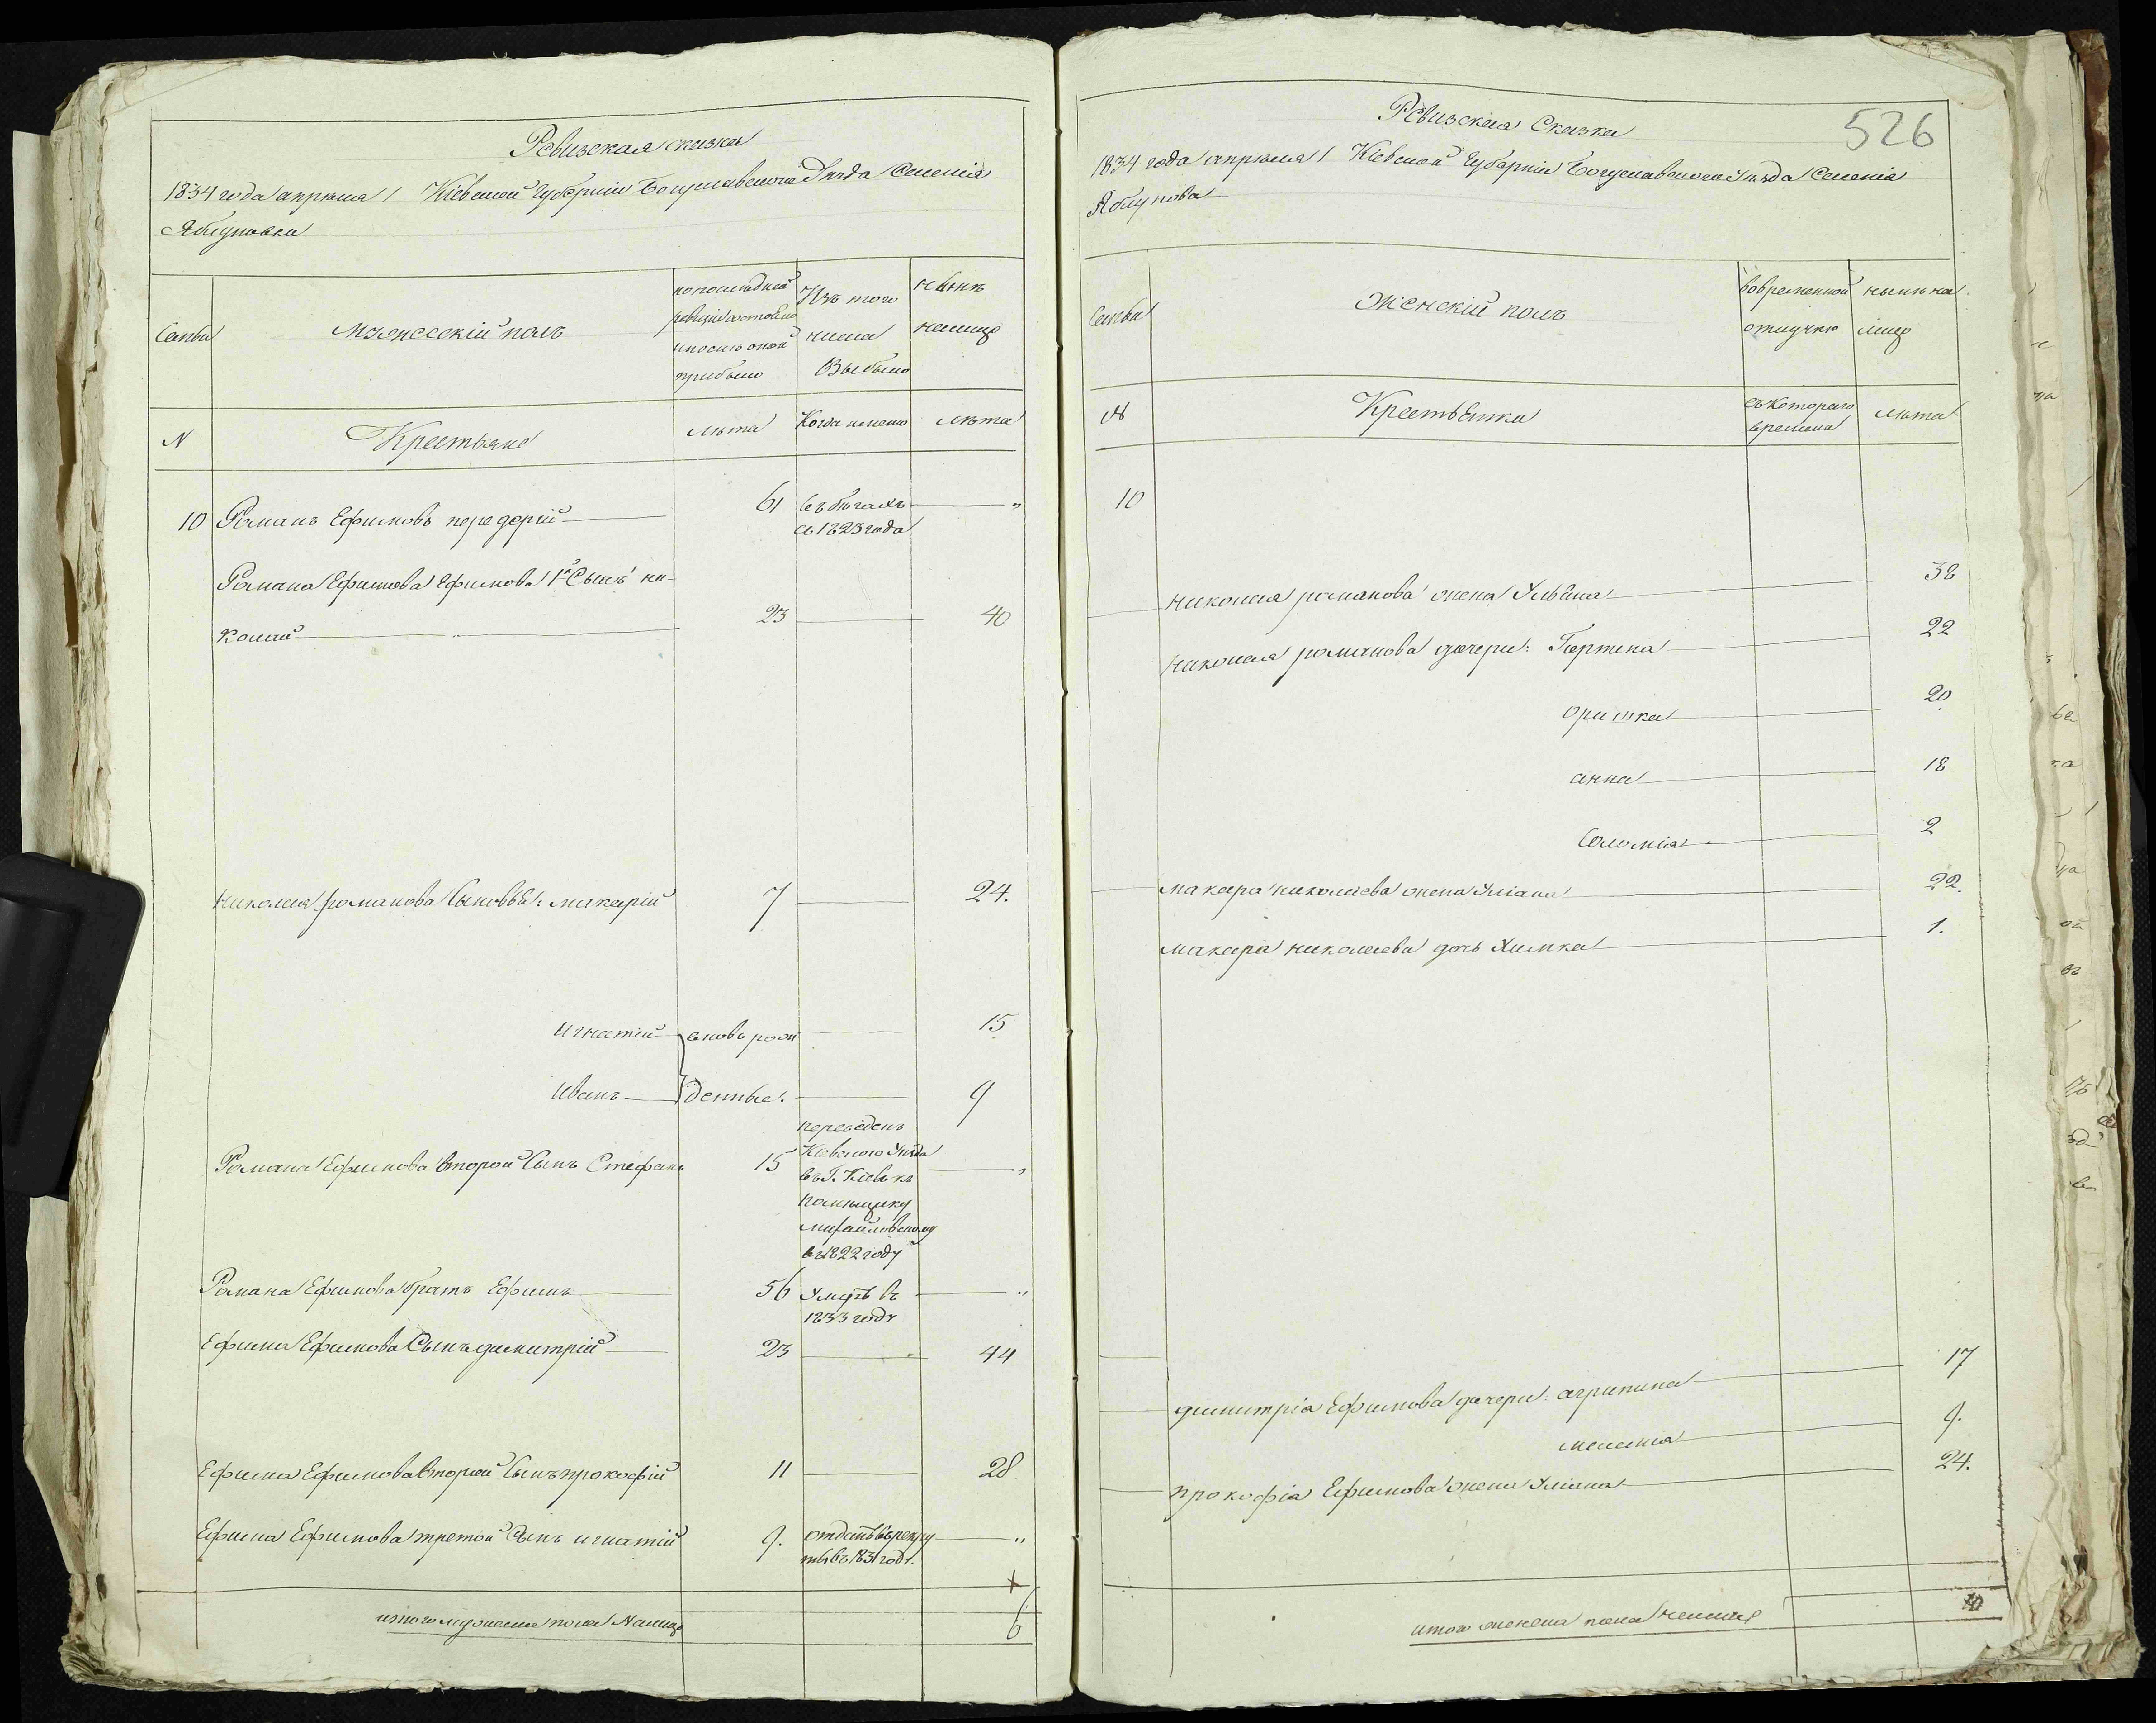 Ревизская сказка
1834 года апрѣля 1 Кіевской Губерніи Богуславского Уѣзда Селенія
Яблуновки
Семьи
Мужеский полъ
по последней
ревизіи состояло
и после оной
прибыло
Изъ того
числа
Выбыло
Нынѣ
налицо
N
Крестьяне
Лѣта
Когда именно
Лѣта
10 Романъ Ефимовъ передерій 61 въ бѣгахъ "
съ 1823 года
Романа Ефимова Ефимова 1й Сынъ ни-
колай 23 40
николая романова Сыновья: макарій 7 24.
игнатій вновь рож 15
Иванъ денные. 9
переведенъ
Романа Ефимова второй Сынъ Стефанъ 15 Кіевского Уѣзда "
въ Г. Кіевъ къ
помѣщику
михайловскому
въ 1822 году
Романа Ефимова братъ Ефимъ 56 умеръ въ "
1833 году
Ефима Ефимова Сынъ димитрій 23 44
Ефима Ефимова второй Сынъ прокофій 11 28
Ефима Ефимова третой Сынъ игнатій 9. отданъ въ рекру "
ты въ 1831 год.
итого мужеска пола Налицо 6
526
Ревизская Сказка
1834 года апрѣля 1 Кіевской Губерніи Богуславского Уѣзда Селенія
Яблунова
Семьи
Женскій полъ
во временной
отлучкѣ
нынѣ на
лицо
N
Крестьянки
съ котораго
времени
Лѣта
10
николая романова жена Ульяна 38
николая романова дочери: Гортина 22
оришка 20
анна 18
Соломія 2
макара николаева жена Уліана 22.
макара николаева дочь Химка 1.
димитрія Ефимова дочери: агрипина 17
меланія 9.
прокофія Ефимова жена Уліана 24.
итого женска пола налицо 10